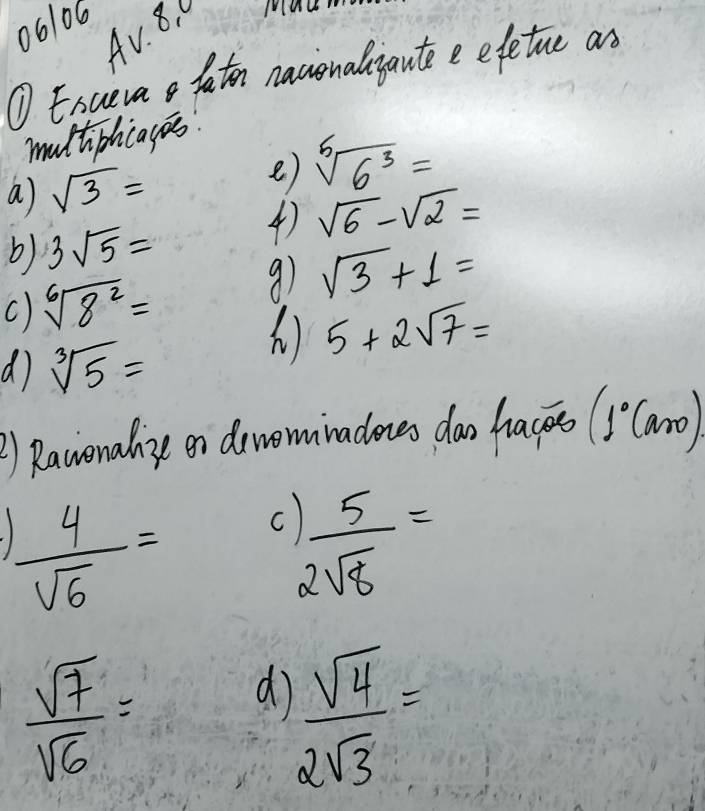 06/06
Av. 8,0
① Escreva o fator racionalizante e efetue as
multiplicações:
a) √3 =
b) 3√5 =
c) ⁶√8² =
d) ³√5 =
e) ⁵√6³ =
f) √6 - √2 =
g) √3 + 1 =
h) 5 + 2√7 =
2) Racionalize os denominadores das frações (1° Caso).
) 4/√6 =
√7/√6 =
c) 5/2√8 =
d) √4/2√3 =